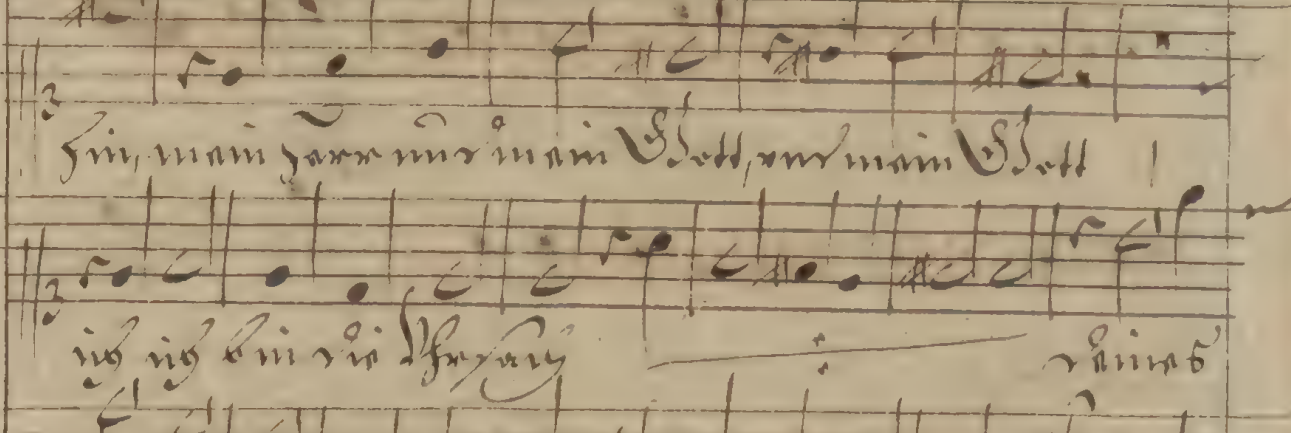 3
hin, mein Herr und mein Gott, und mein Gott
3
ich ich bin die Uhrsach deines